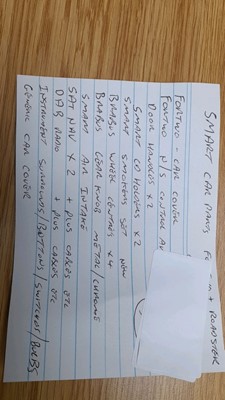 SMART CAR PARTS FO + ROADSTER
FORTWO - CAR COVER
FORTWO N/S CONTROL A
DOOR HANDLES x 2
SMART CD HOLDERS x 2
SMART SMOKERS SET NEW
BRABUS WHEEL CENTRES x 4
BRABUS GEAR KNOB METAL/CHROME
SMART AIR INTAKE
SAT NAV x 2 + PLUS CABLES ETC
DAB RADIO + PLUS CABLES ETC
INSTRUMENT SURROUNDS/BUTTONS/SWITCHES/BULBS
GENERIC CAR COVER